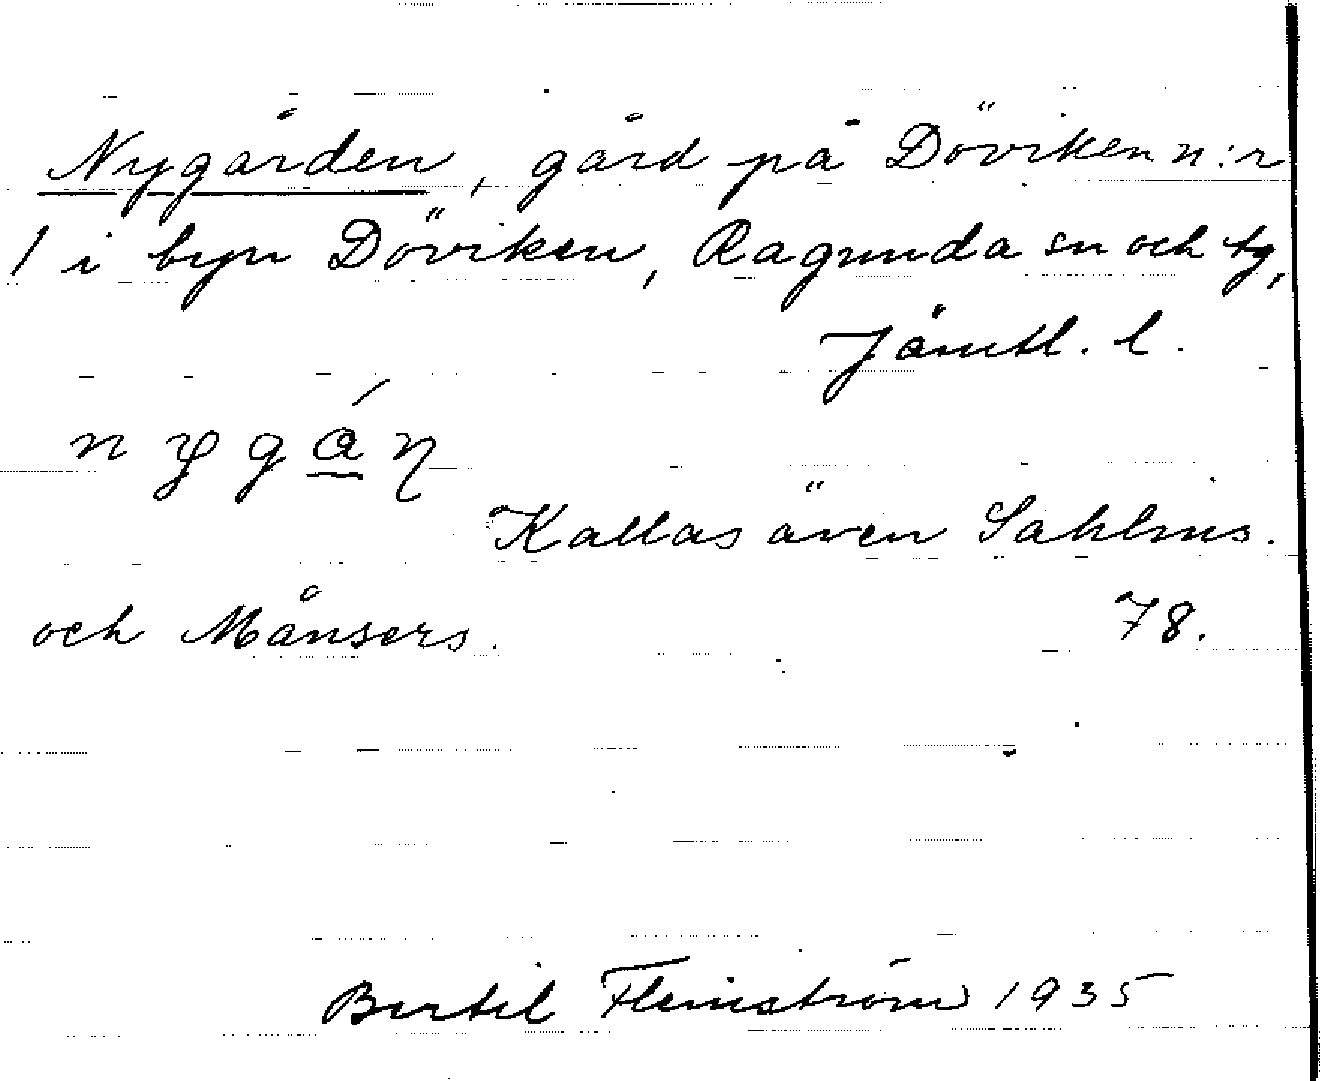 Nygården, gård på Döviken n:r
1 i byn Döviken, Ragunda sn och tg,
Jämtl. l.
n y g ǻ n
Kallas även Sahlins.
och Månsers.
78.
Bertil Flemström 1935